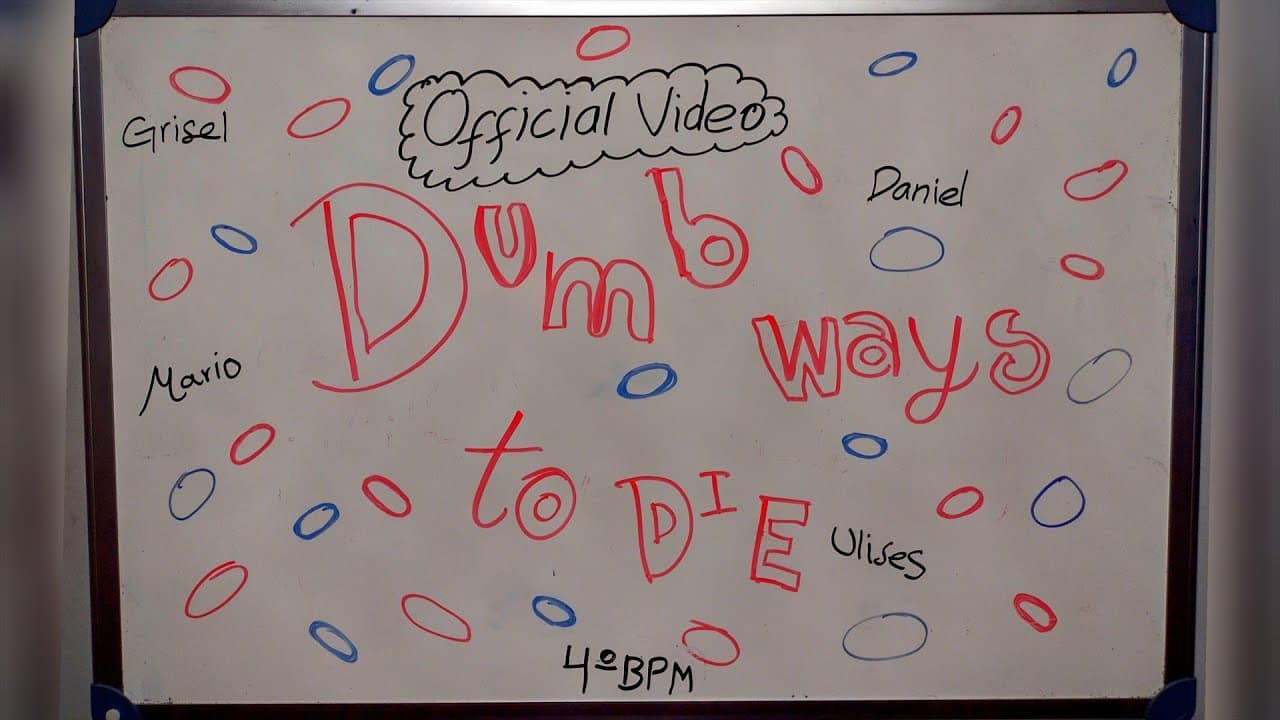 Official Video
Grisel
Daniel
Dumb
ways
Mario
to DIE
Ulises
4º BPM